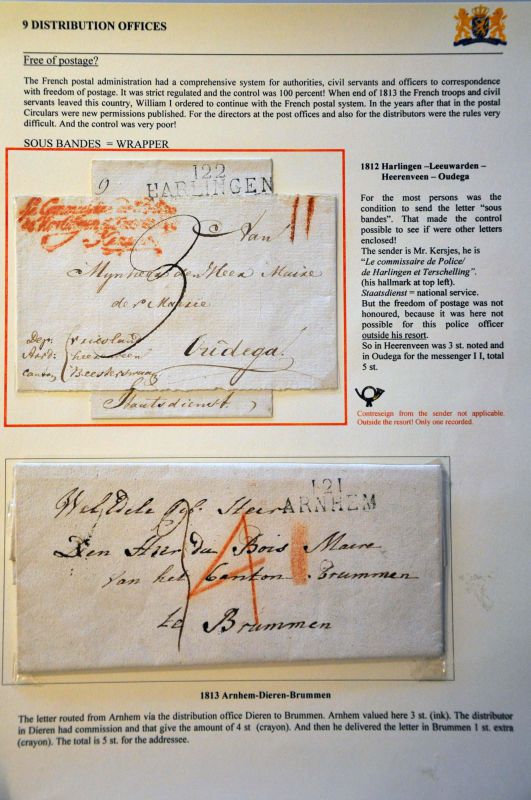 9 DISTRIBUTION OFFICES
Free of postage?
The French postal administration had a comprehensive system for authorities, civil servants and officers to correspondence
with freedom of postage. It was strict regulated and the control was 100 percent! When end of 1813 the French troops and civil
servants leaved this country, William I ordered to continue with the French postal system. In the years after that in the postal
Circulars were new permissions published. For the directors at the post offices and also for the distributors were the rules very
difficult. And the control was very poor!
SOUS BANDES = WRAPPER
122
HARLINGEN
9
3
II
Van
Mynheer den Heer Maire
der Mairie
Oudega!
Dep: Vriesland
Arr: heerenveen
canton Beesterswaag
Staatsdienst
1812 Harlingen –Leeuwarden –
Heerenveen – Oudega
For the most persons was the
condition to send the letter "sous
bandes". That made the control
possible to see if were other letters
enclosed!
The sender is Mr. Kersjes, he is
"Le commissaire de Police/
de Harlingen et Terschelling".
(his hallmark at top left).
Staatsdienst = national service.
But the freedom of postage was not
honoured, because it was here not
possible for this police officer
outside his resort.
So in Heerenveen was 3 st. noted and
in Oudega for the messenger I I, total
5 st.
Contreseign from the sender not applicable.
Outside the resort! Only one recorded.
121
ARNHEM
WelEdele Heer
Den Heer du Bois Maire
van het Canton Brummen
te Brummen
4
1813 Arnhem-Dieren-Brummen
The letter routed from Arnhem via the distribution office Dieren to Brummen. Arnhem valued here 3 st. (ink). The distributor
in Dieren had commission and that give the amount of 4 st (crayon). And then he delivered the letter in Brummen 1 st. extra
(crayon). The total is 5 st. for the addressee.